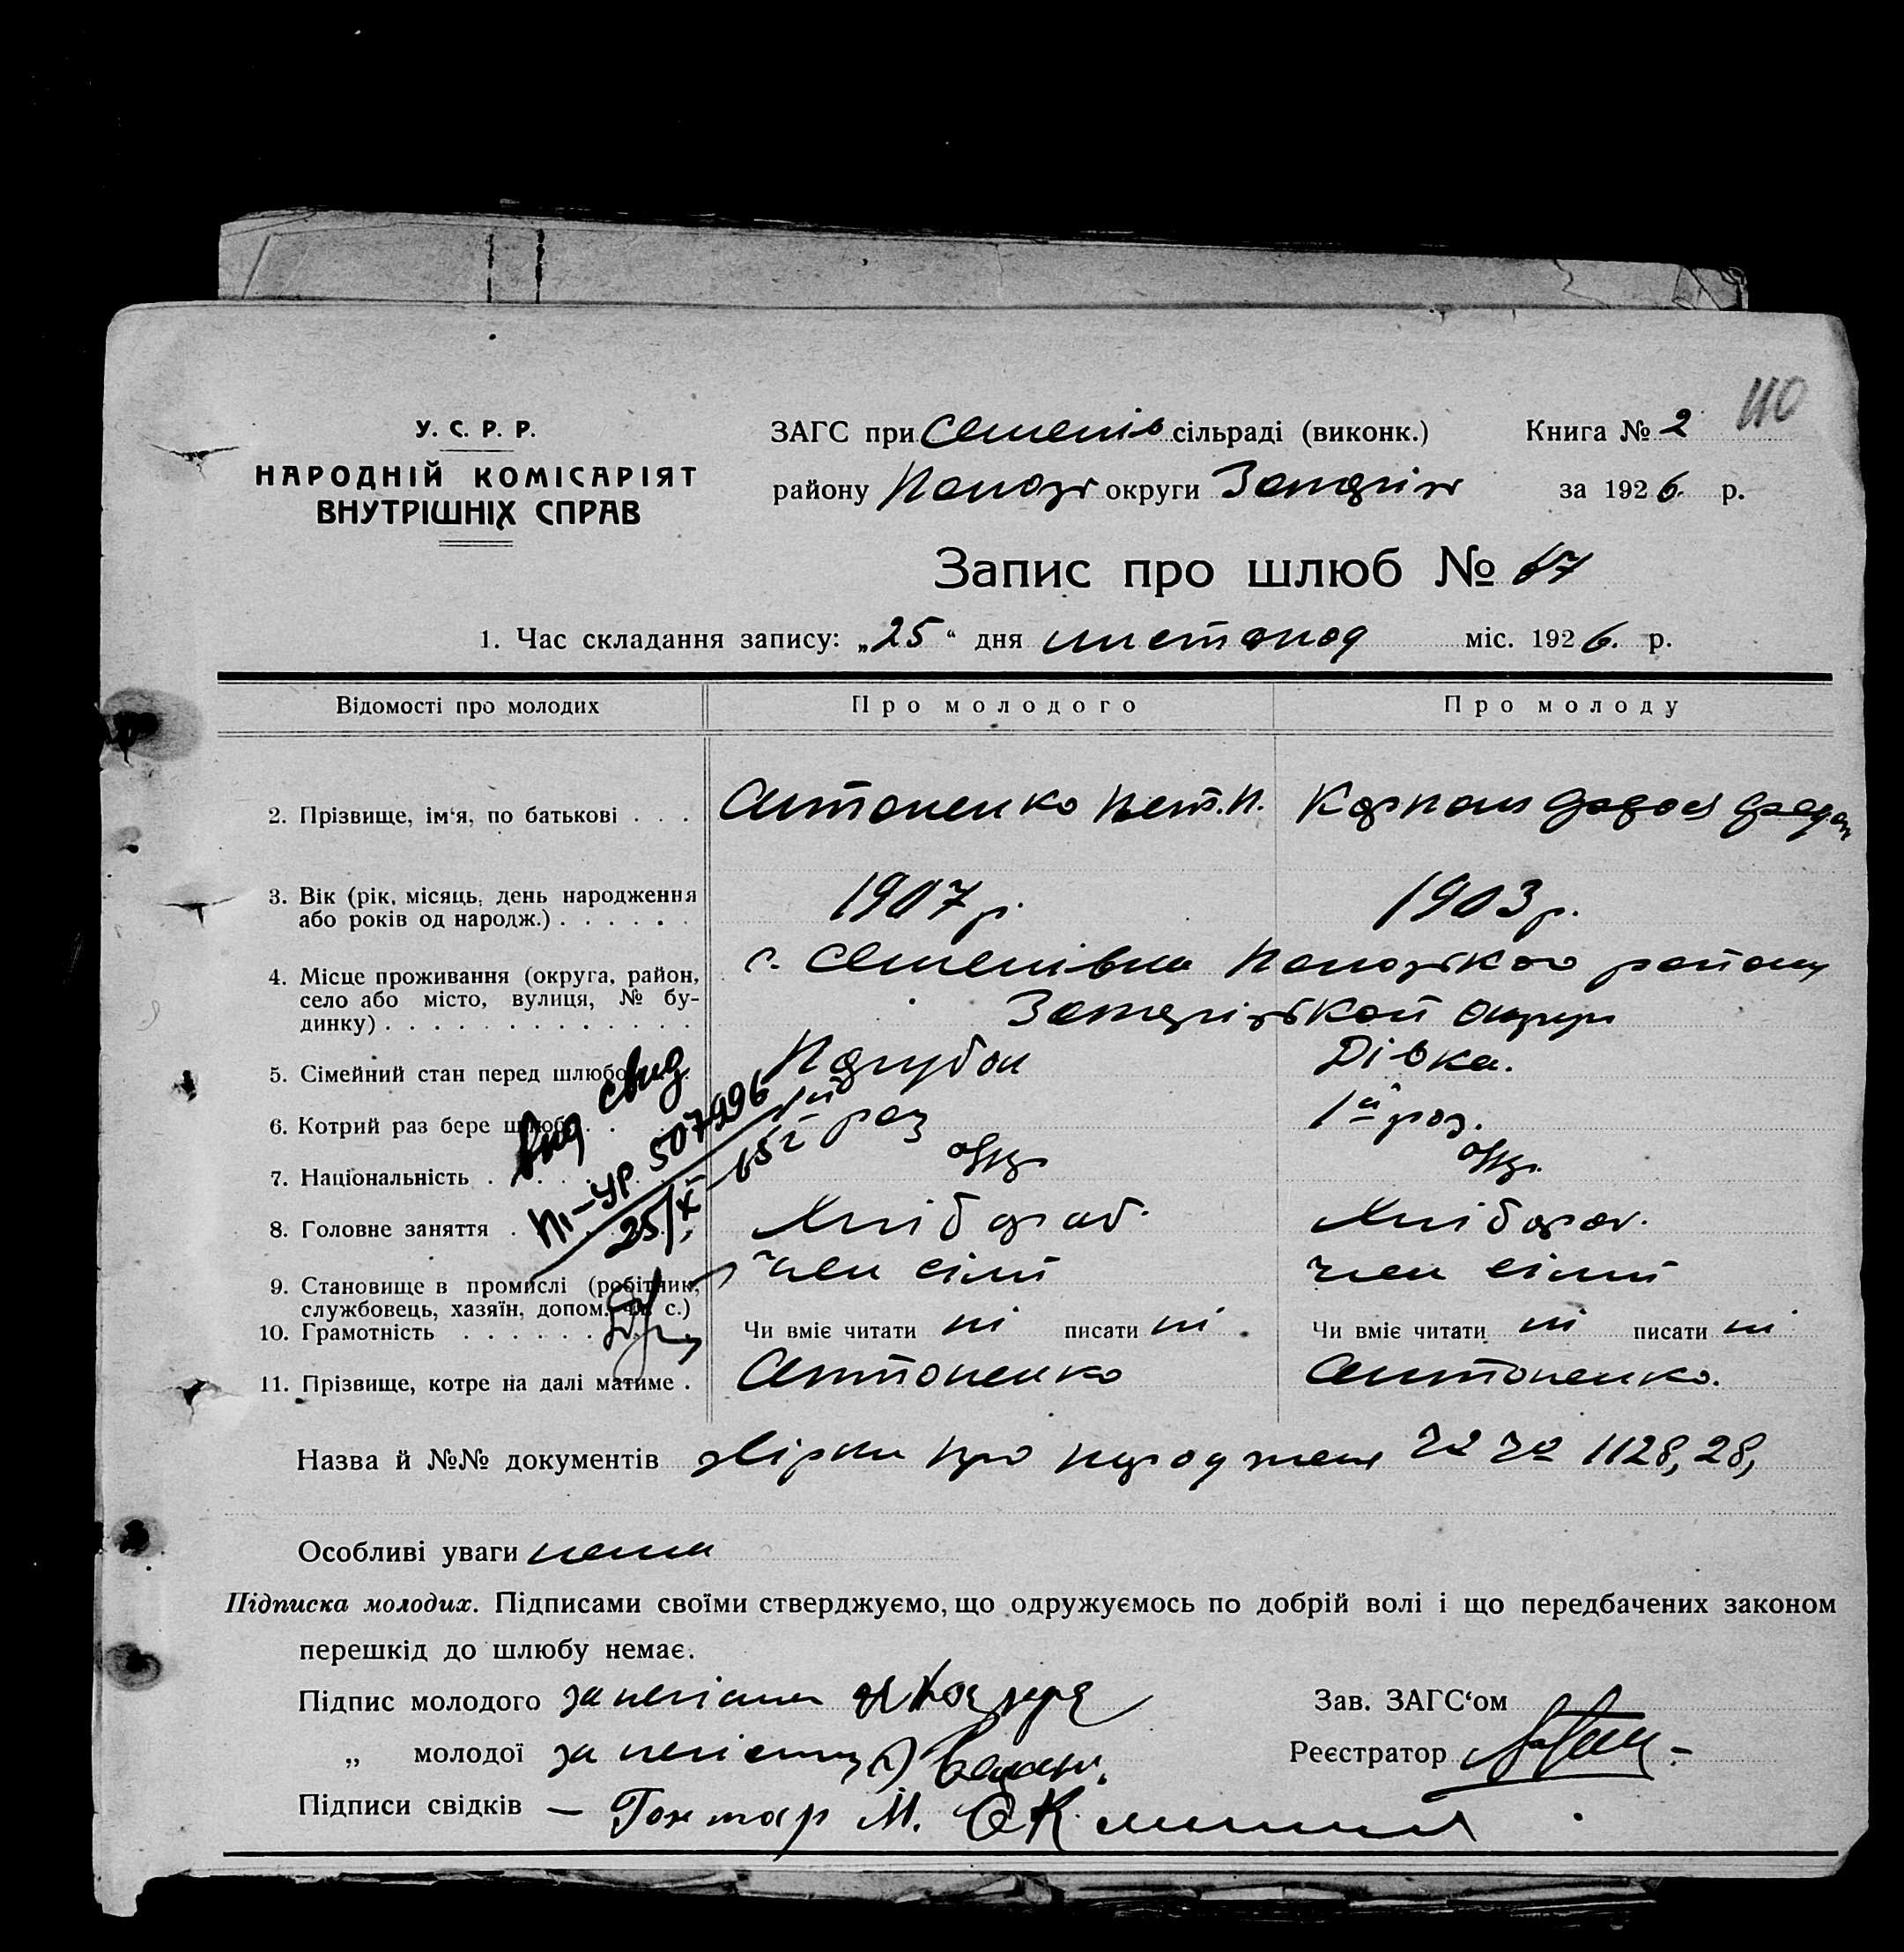 110
У. С. Р. Р.
НАРОДНІЙ КОМІСАРІЯТ
ВНУТРІШНІХ СПРАВ
ЗАГС при Семенів сільраді (виконк.) Книга № 2
району округи за 1926. р.
Запис про шлюб № 67
1. Час складання запису: „25“ дня листопад міс. 1926. р.
Відомості про молодих Про молодого Про молоду
2. Прізвище, ім‘я, по батькові . . . Антоненко Пет. П.
3. Вік (рік, місяць, день народження
або років од народж.) . . . . . . 1907 р. 1903 р.
4. Місце проживання (округа, район,
село або місто, вулиця, № бу-
динку) . . . . . . . . . . . . . с. Семенівка району
округи
5. Сімейний стан перед шлюбо Парубок Дівка.
6. Котрий раз бере шлюб . . раз 1й раз.
7. Національність . укр укр.
8. Головне заняття . Хлібороб. Хлібороб.
9. Становище в промислі (робітник,
службовець, хазяїн, допом. чл. с.) член сімї член сімї
10. Грамотність . . . . . . Чи вміє читати ні писати ні. Чи вміє читати ні писати ні
11. Прізвище, котре на далі матиме . Антоненко Антоненко.
Вид свид
25/XI
Назва й №№ документів про 1128, 28,
Особливі уваги нема
Підписка молодих. Підписами своїми стверджуємо, що одружуємось по добрій волі і що передбачених законом
перешкід до шлюбу немає.
Підпис молодого за Зав. ЗАГС‘ом
„ молодої за Реєстратор
Підписи свідків — Гонтар М.